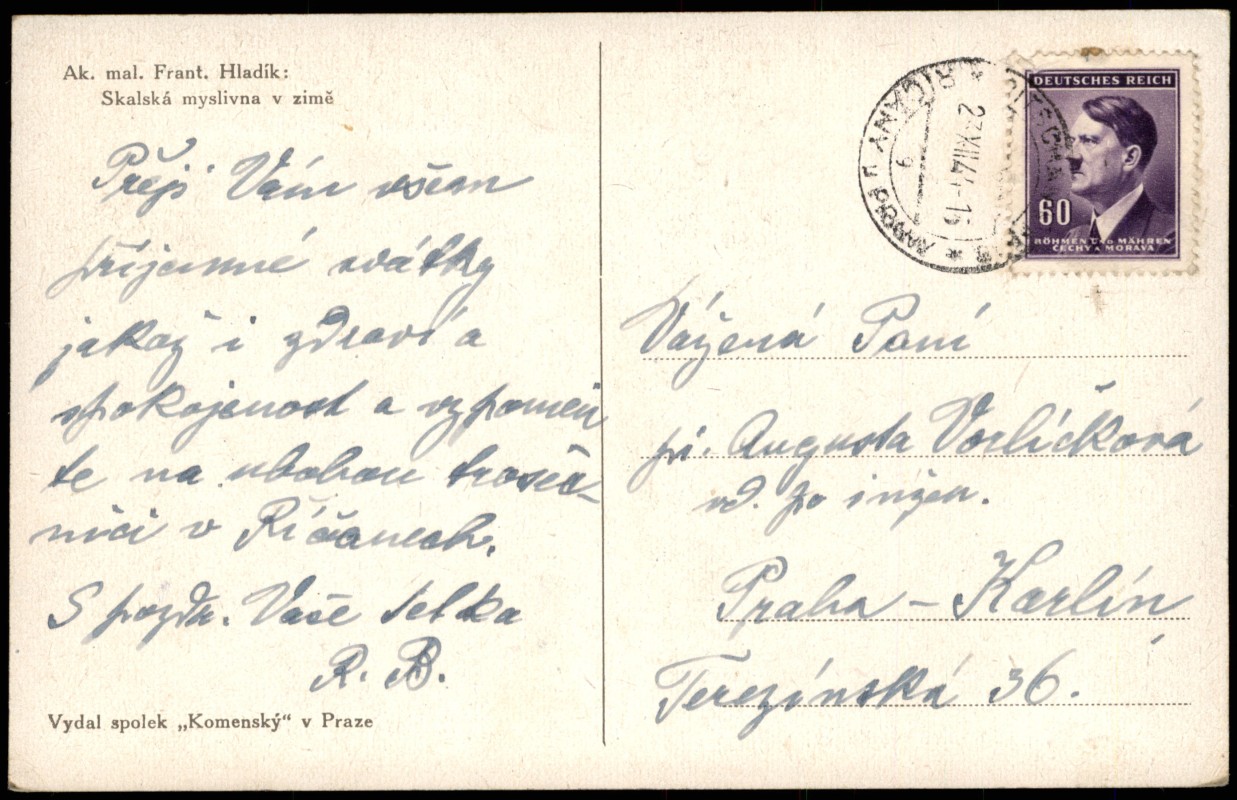 Ak. mal. Frant. Hladík:
Skalská myslivna v zimě
Přeji Vám všem
příjemné svátky
jakož i zdraví a
spokojenost a vzpomeň
te na ubohou troseč-
nici v Říčanech.
S pozdr. Vaše tetka
R. B.
Vydal spolek „Komenský“ v Praze
ŘÍČANY u PRAHY
23.XII.44-16
DEUTSCHES REICH
60
BÖHMEN UND MÄHREN
ČECHY A MORAVA
Vážená Paní
pí. Augusta Vorlíčková
vd. po inžen.
Praha – Karlín
Terezínská 36.